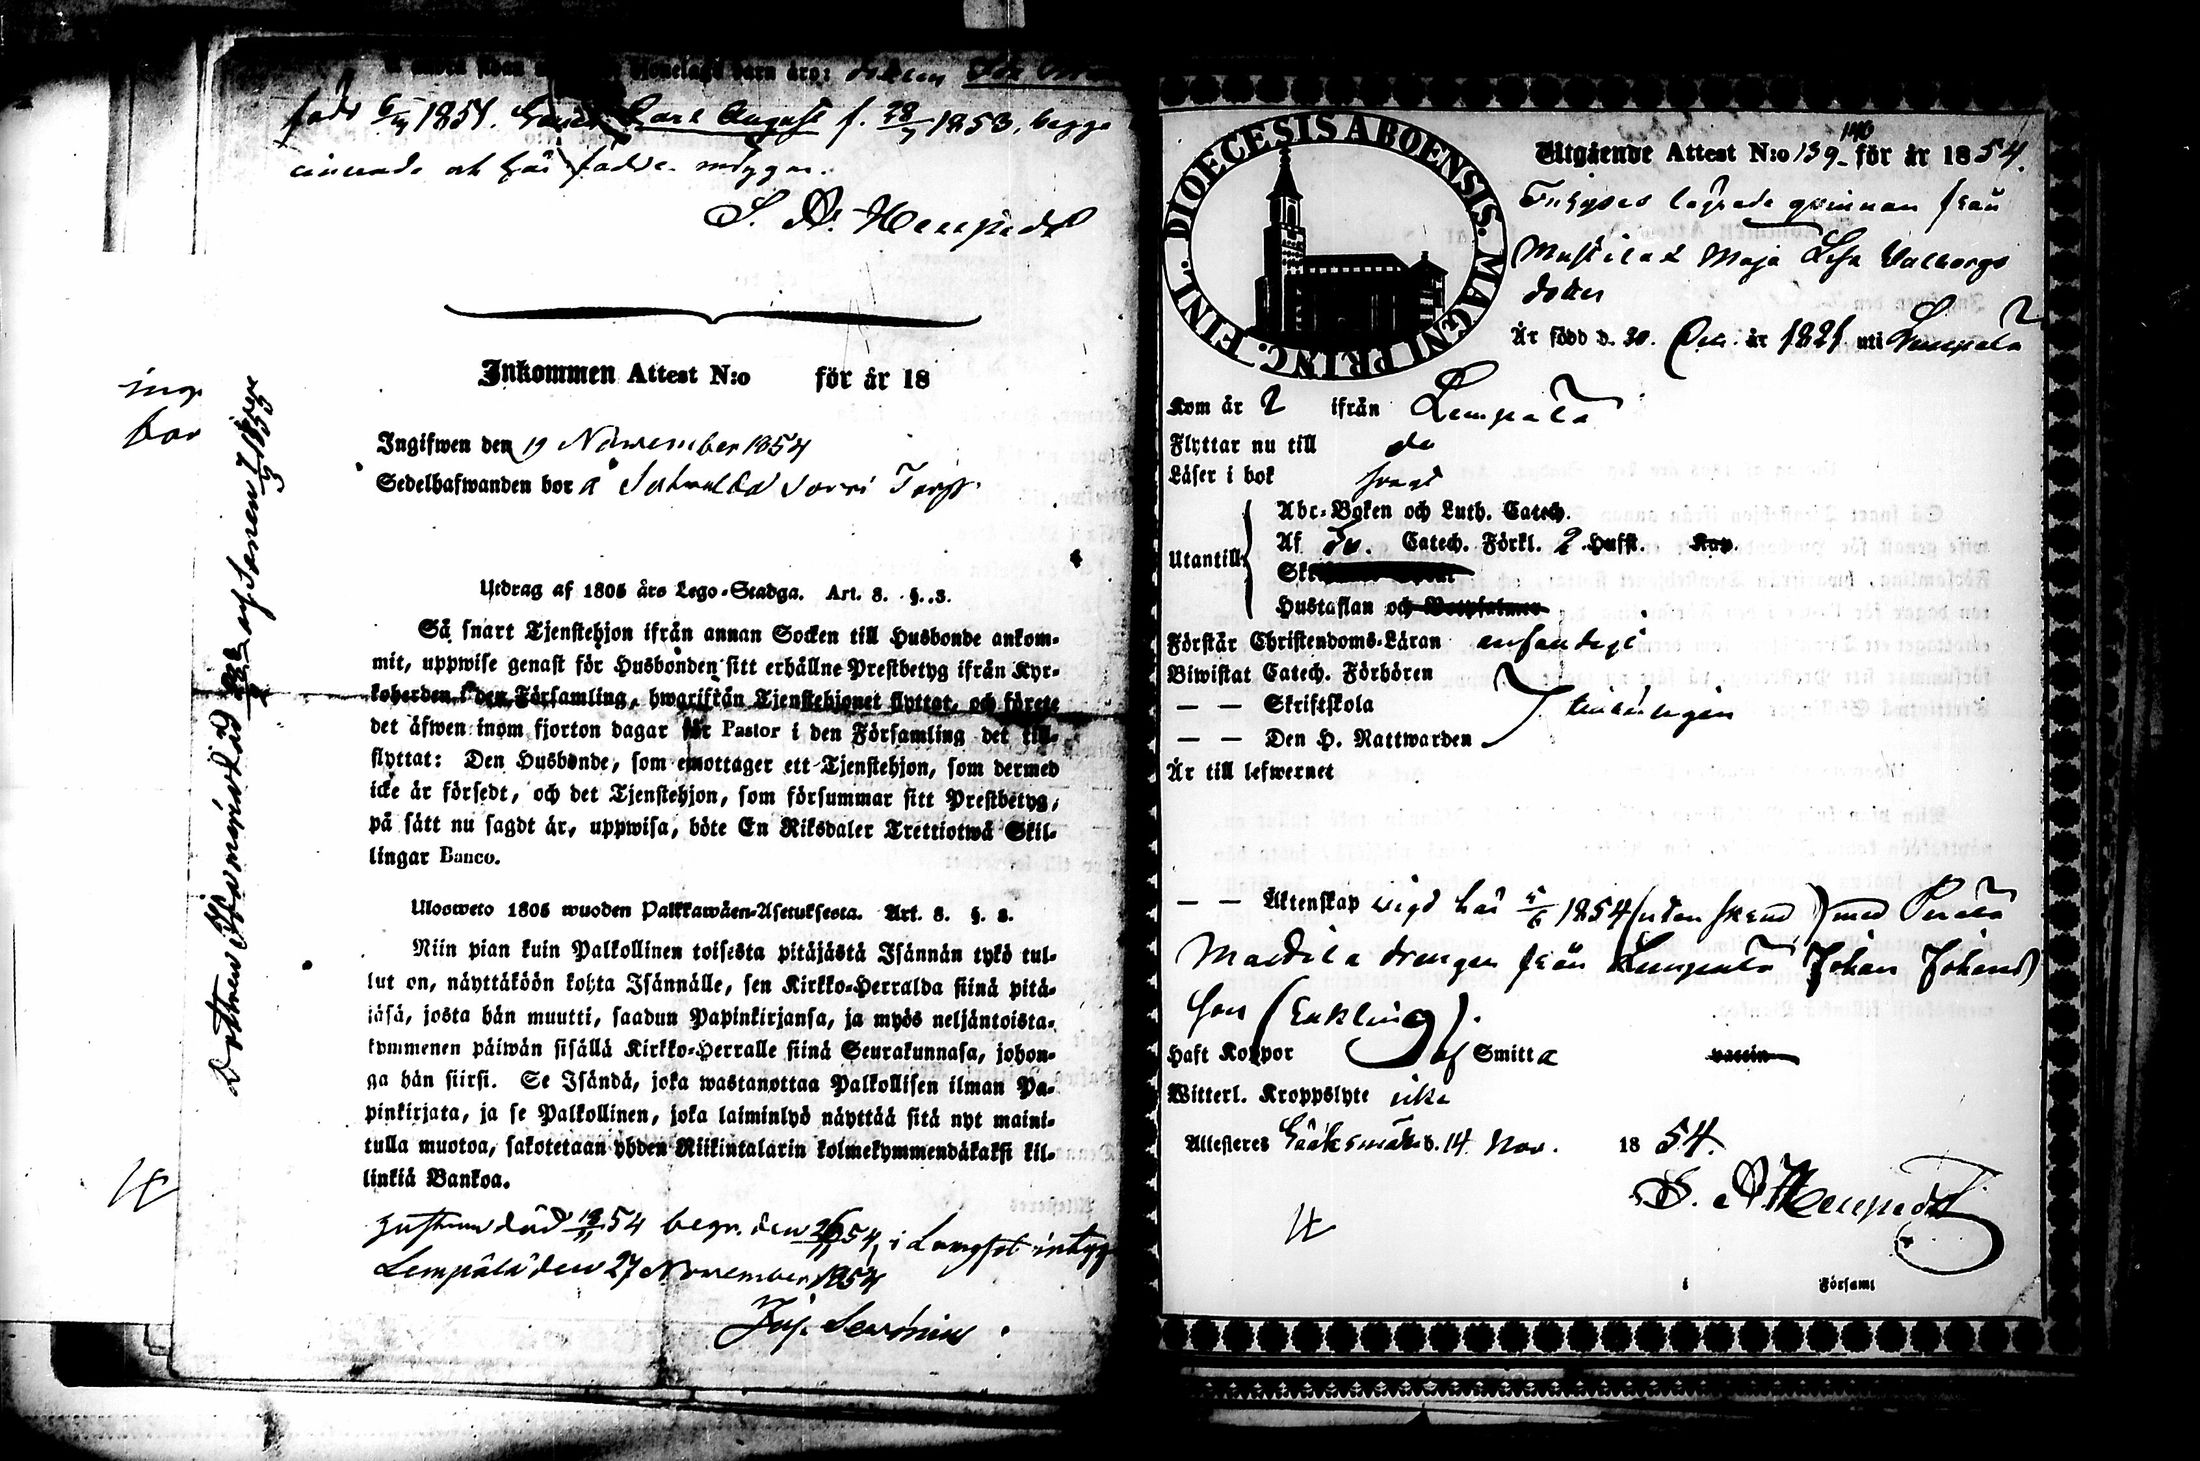 född 6/4 1851. Carl August f. 28/7 1853, begge
och här födde intygar.
Inkommen Attest N:o för år 18
Ingifwen den 19 November 1854
Sedelhafwanden bor å Torp
Utdrag af 1805 års Lego-Stadga. Art. 8. §. 3.
Så snart Tjenstehjon ifrån annan Socken till Husbonde ankom-
mit, uppwise genast för Husbonden sitt erhållne Prestbetyg ifrån Kyr-
koherden i den Församling, hwarifrån Tjenstehjonet flyttat, och förete
det äfwen inom fjorton dagar för Pastor i den Församling det till-
flyttat: Den Husbonde, som emottager ett Tjenstehjon, som dermed
icke är försedt, och det Tjenstehjon, som försummar sitt Prestbetyg,
på sätt nu sagdt är, uppwisa, böte En Riksdaler Trettiotwå Skil-
lingar Banco.
Ulosweto 1805 wuoden Palkkawäen-Asetuksesta. Art. 8. §. 3.
Niin pian kuin Palkollinen toisesta pitäjästä Isännän tykö tul-
lut on, näyttäköön kohta Isännälle, sen Kirkko-Herralda siinä pitä-
jäsä, josta hän muutti, saadun Papinkirjansa, ja myös neljäntoista-
kymmenen päiwän sisällä Kirkko-Herralle siinä Seurakunnasa, johon-
ga hän siirsi. Se Isändä, joka wastanottaa Palkollisen ilman Pa-
pinkirjata, ja se Palkollinen, joka laiminlyö näyttää sitä nyt maini-
tulla muotoa, sakotetaan yhden Riikintalarin kolmekymmendäkaksi kil-
linkiä Bankoa.
Hustrun död 18/11 54 begr. den 26/11 54, i Longslot intyg
Lempälä den 27 November 1854
DIOECESIS ABOENSIS. MAGNI PRINC. FINL.
Utgående Attest N:o 139-140 för år 1854.
qvinnan från
Maja Lisa Valborgs
dotter
Är född d. 30 Oct. år 1821 uti Lempälä
Kom år 2 ifrån Lempälä
Flyttar nu till do
Läser i bok svagt
Utantill:
Abc-Boken och Luth. Catech.
Af Sv. Catech. Förkl. 2 Hufst. Kap.
Hustaflan och Botpsalmer
Förstår Christendoms-Läran enfaldigt
Biwistat Catech. Förhören
— — Skriftskola
— — Den H. Nattwarden
Är till lefwernet
— — Äktenskap vigd här 5/6 1854 (utan skrud) med
Mattila drengen från Lempälä Johan Johans
son (Enkling).
Haft Koppor af Smitta vaccin
Witterl. Kroppslyte icke
Attesteres Sääksmäki d. 14 Nov. 1854.
i Församl